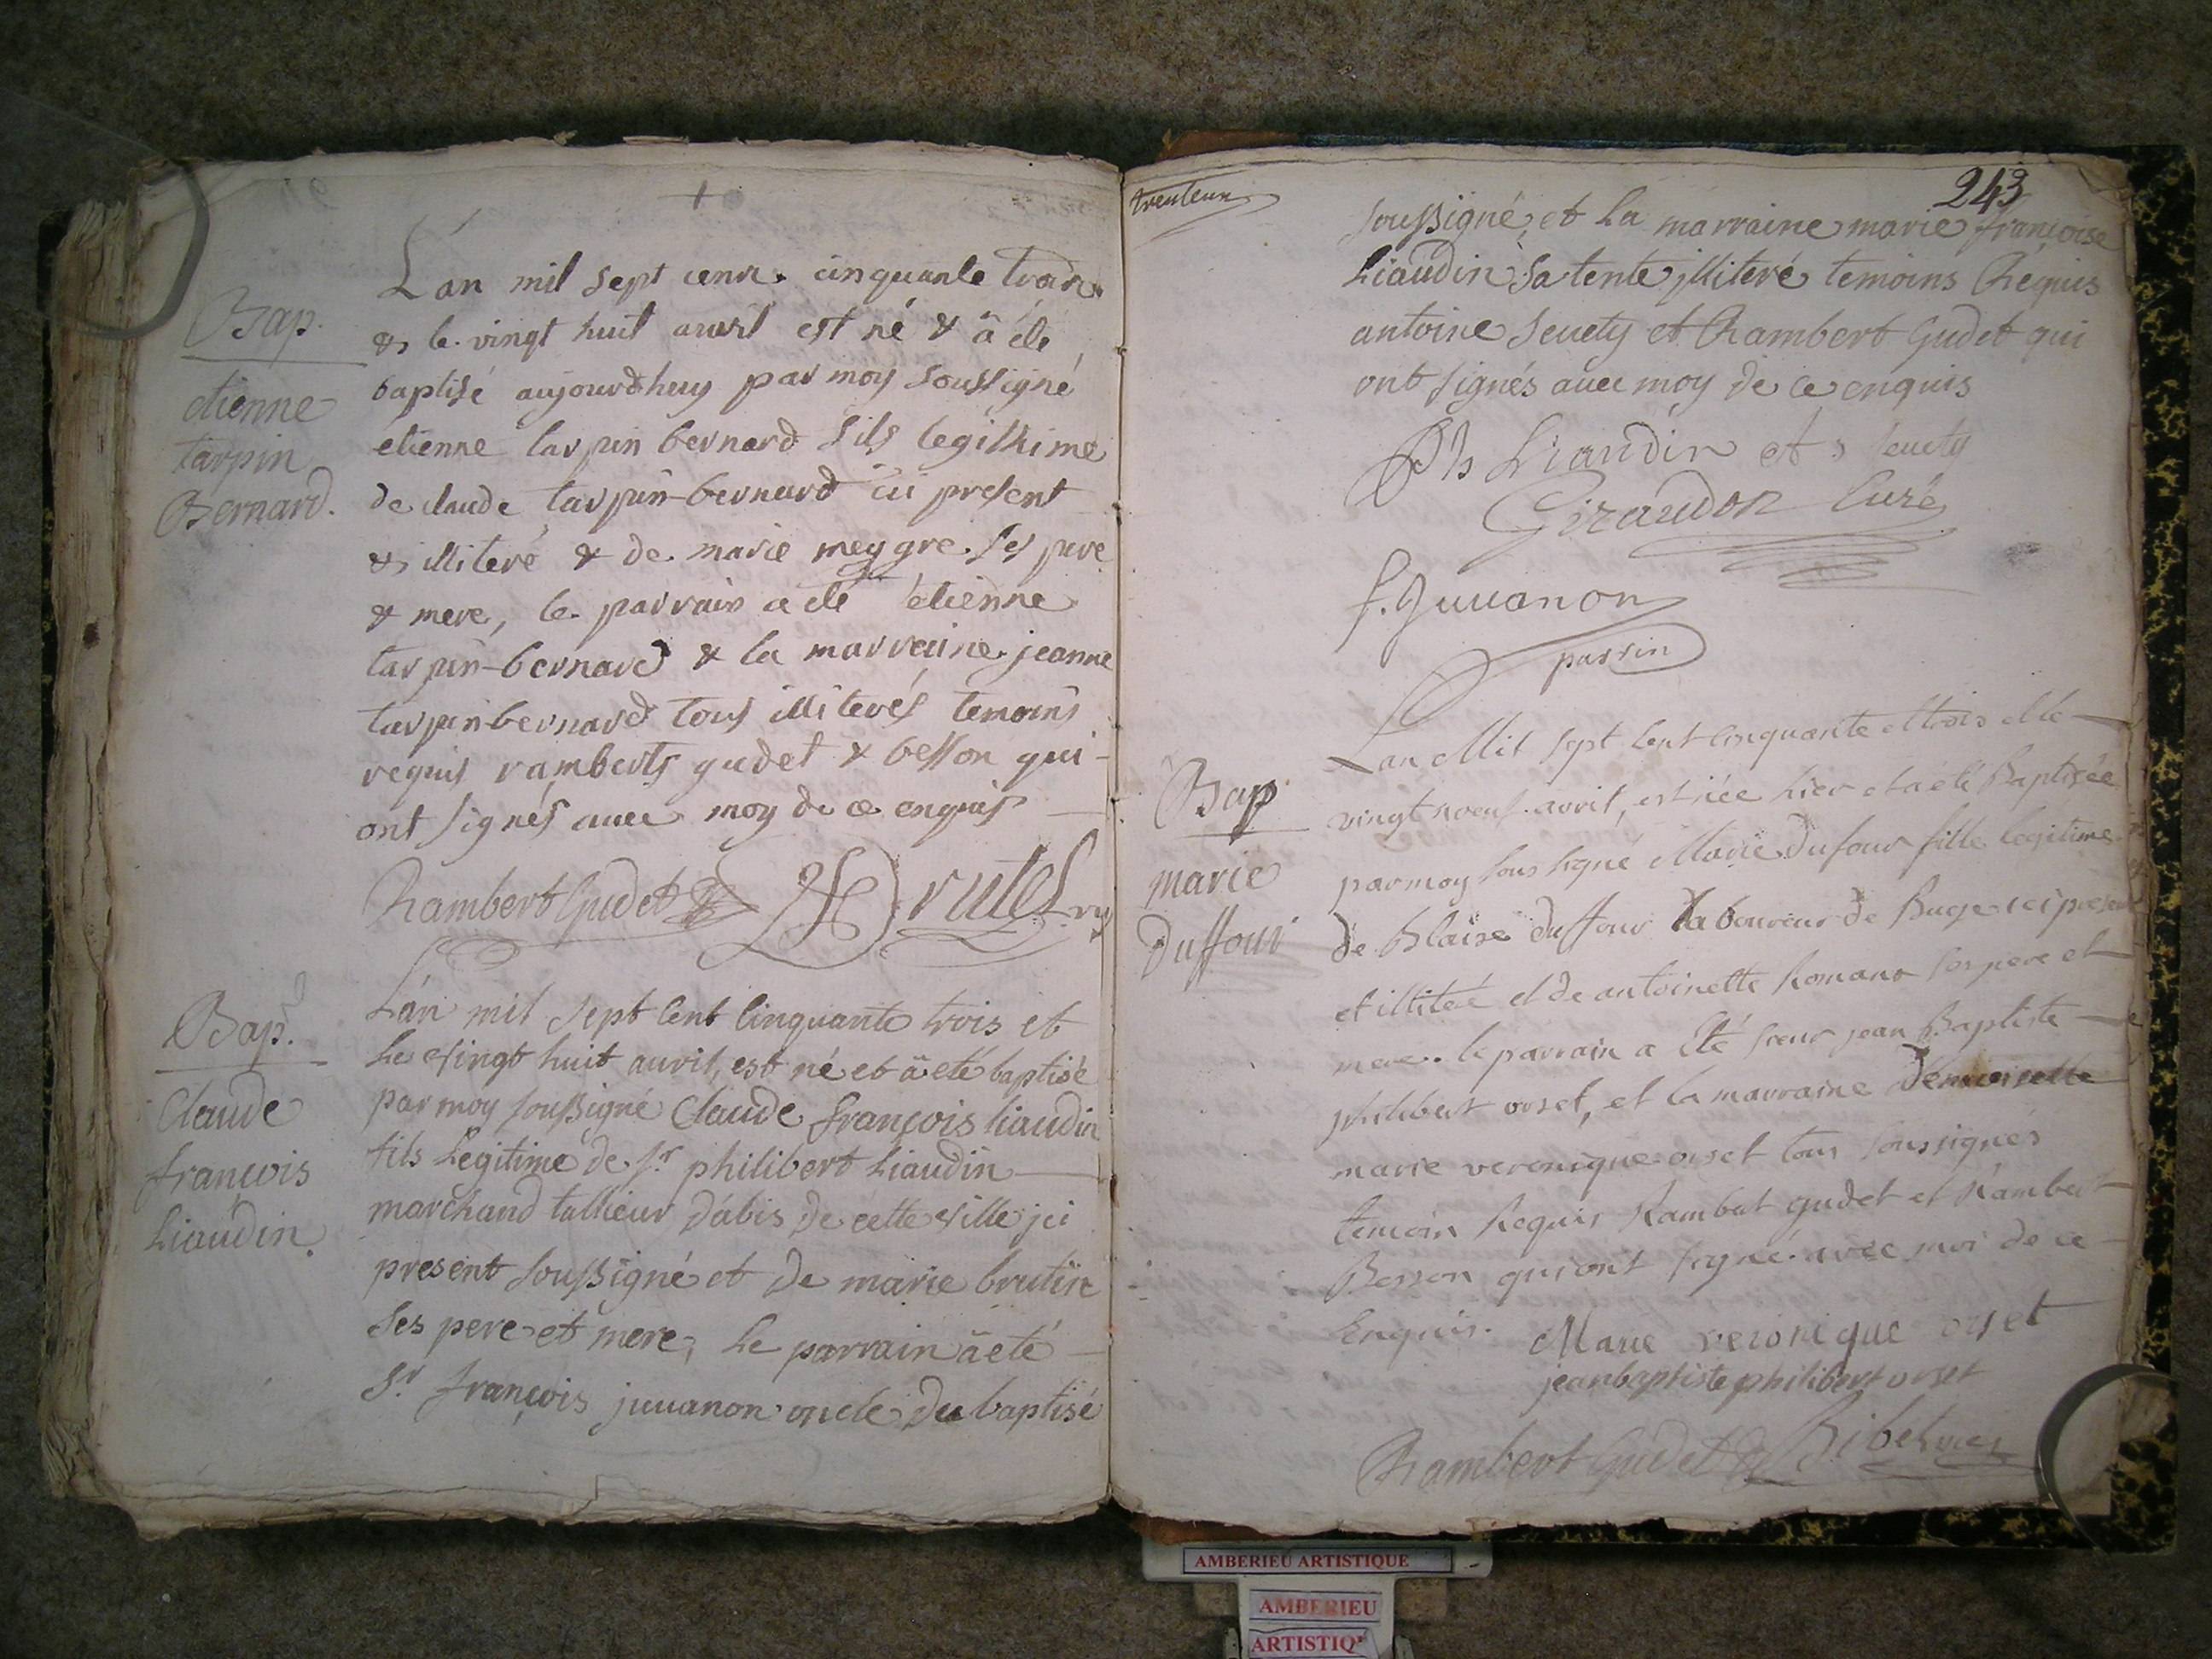 Bap.
etienne
tarpin
Bernard.
L'an mil sept cens cinquante trois
& le vingt huit avril est né & â été
baptisé aujourdhuy par moy soussigné
etienne tarpin bernard fils legithime
de claude tarpin-bernard ici present
& illiteré & de marie meygre ses pere
& mere, le parrain a été étienne
tarpin-bernard & la marreine jeanne
tarpin-bernard tous illiterés temoins
requis ramberts gudet & besson qui
ont signés avec moy de ce enquis
Rambert Gudet
Bap.
Claude
françois
Liaudin.
L'an mil sept Cent Cinquante trois et
Le vingt huit auvril, est né et â eté baptisé
par moy soussigné Claude françois liaudin
fils Legitime de Sr philibert Liaudin
marchand tallieur d'abis de cette ville jci
present soussigné et de marie brutin
ses pere et mere, Le parrain â eté
Sr françois juuanon oncle du baptisé
trenteun
243
soussigné, et La marraine marie françoise
Liaudin sa tente jlliteré temoins Requis
antoine seuety et Rambert Gudet qui
ont signés auec moy de ce enquis
Ph Liaudin at seuety
Giraudon Curé
f. Juuanon
parrin
Bap
marie
Duffour
Lan Mil sept Cent Cinquante et trois et le
vingt noeuf avril, est née hier et a été Baptisée
par moy sous signé Marie Dufour fille legitime
de Blaise duffour laboureur de Buge ici present
et illiteré et de antoinette Romano ses pere et
mere. le parrain a Eté sieur jean Baptiste
philibert orset, et la marraine Demoiselle
marie veronique orset tous soussignés
temoin Requis Rambert gudet et Rambert
Besson qui ont signé avec moi de ce
Enquis.
Marie veronique orset
jeanbaptiste philibert orset
Rambert Gudet
AMBERIEU ARTISTIQUE
AMBERIEU
ARTISTIQ